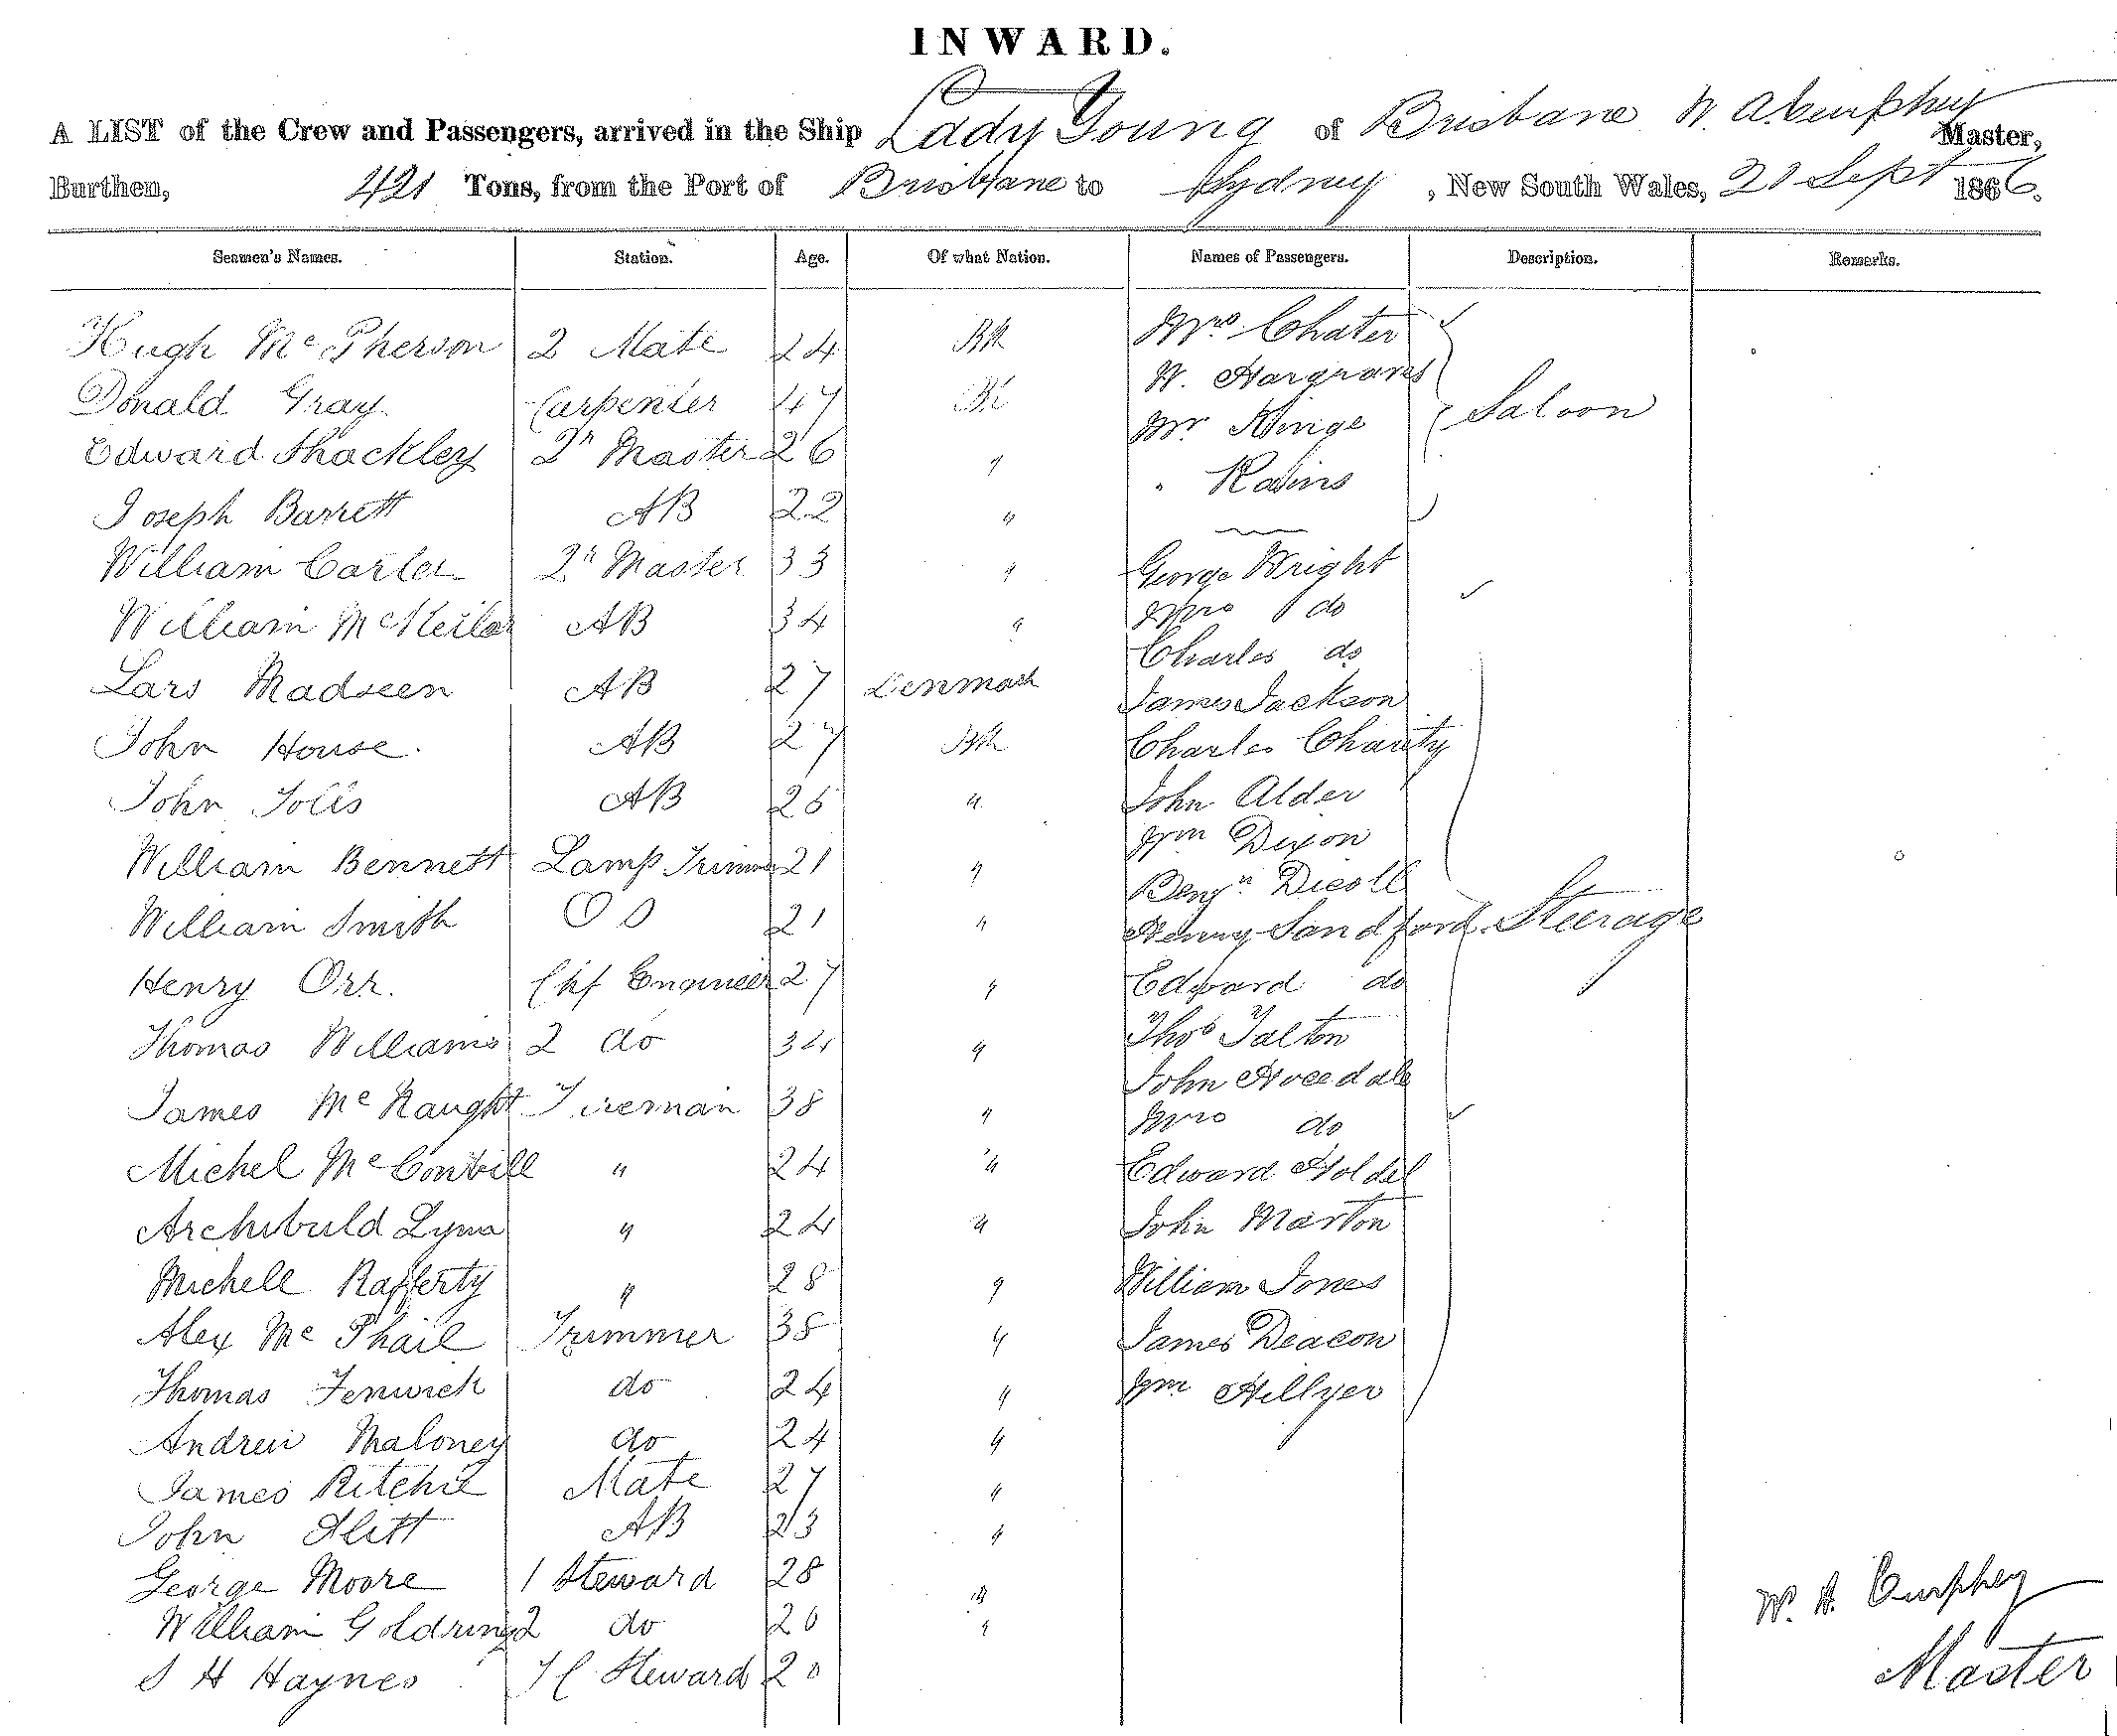 INWARD.
A LIST of the Crew and Passengers, arrived in the Ship Lady Young of Brisbane W. A. Curphey Master,
Burthen, 421 Tons, from the Port of Brisbane to Sydney, New South Wales, 21 Sept 1866.
Seamen's Names. Station. Age. Of what Nation. Names of Passengers. Description. Remarks.
Hugh McPherson 2 Mate 24 Bh Mrs Chater
W. Hargraves
Donald Gray Carpenter 47 Bh
Mr Hinge Saloon
Edward Shackley 2r Master 26 "
" Rains
Joseph Barrett AB 22 "
William Carter 2r Master 33 " George Wright
William McKellar AB 34 " Mrs do
Charles do
Lars Madseen AB 27 Denmark James Jackson
John House. AB 27 Bh Charles Charity
John Tolis AB 26 " John Alder
Wm Dixon
William Bennett Lamp Trimmer 21 "
Benjn Dicoll
William Smith OS 21 " Henry Sandford Steerage
Henry Orr. Chf Engineer 27 " Edward do
Thomas Williams 2 do 34 " Thos Talton
John
James McNaught Fireman 38 " Mrs do
Michel McConvill " 24 " Edward Holdel
Archibuld Lyma " 24 " John Marton
Michell Rafferty " 28 " William Jones
Alex McPhail Trimmer 38 " James Deacon
Thomas Fenwick do 24 " Wm Hillyer
Andrew Maloney do 24 "
James Ritchie Mate 27 "
John AB 23 "
George Moore 1 Steward 28 "
W. A. Curphey
William Goldring 2 do 20 "
Master
S H Haynes Steward 20